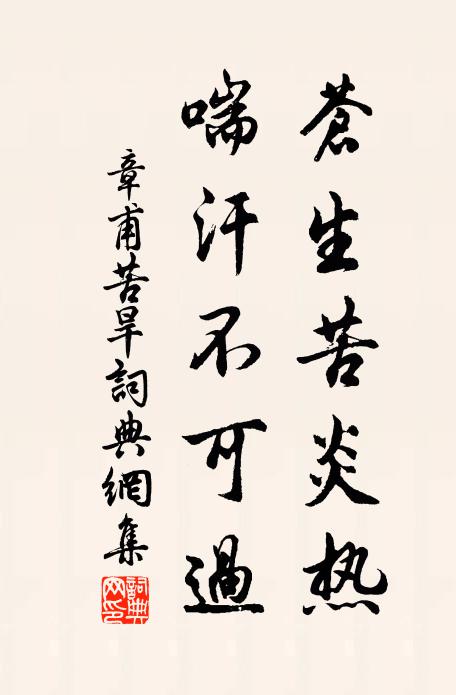 蒼生苦炎热
喘汗不可過
章甫苦旱詞典網集
詞典网印